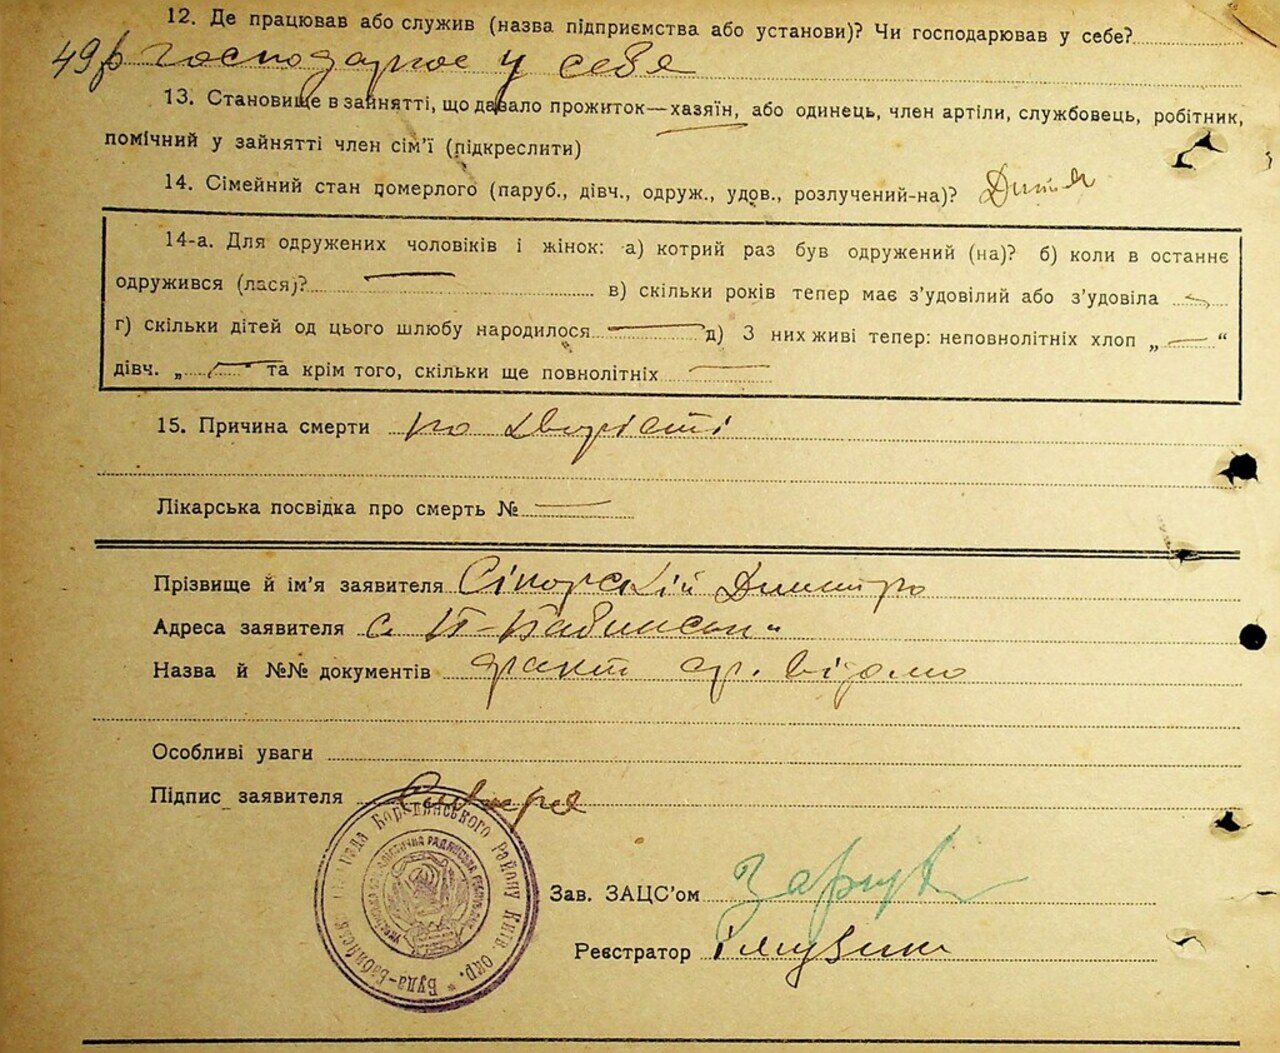 12. Де працював або служив (назва підприємства або установи)? Чи господарював у себе?
49р господарює у себе
13. Становище в зайнятті, що давало прожиток—хазяїн, або одинець, член артіли, службовець, робітник,
помічний у зайнятті член сім’ї (підкреслити)
14. Сімейний стан померлого (паруб., дівч., одруж., удов., розлучений-на)? Дитя
14-а. Для одружених чоловіків і жінок: а) котрий раз був одружений (на)? б) коли в останнє
одружився (лася)? — в) скільки років тепер має з’удовілий або з’удовіла —
г) скільки дітей од цього шлюбу народилося — д) З них живі тепер: неповнолітніх хлоп „—“
дівч. „—“ та крім того, скільки ще повнолітніх —
15. Причина смерти по
Лікарська посвідка про смерть № —
Прізвище й ім’я заявителя Сікорській Дмитро
Адреса заявителя с.
Назва й №№ документів факт ср. відомо
Особливі уваги
Підпис заявителя
Буда-Бабинська сільрада Бородянського Району Київ. окр.
Зав. ЗАЦС’ом
Реєстратор